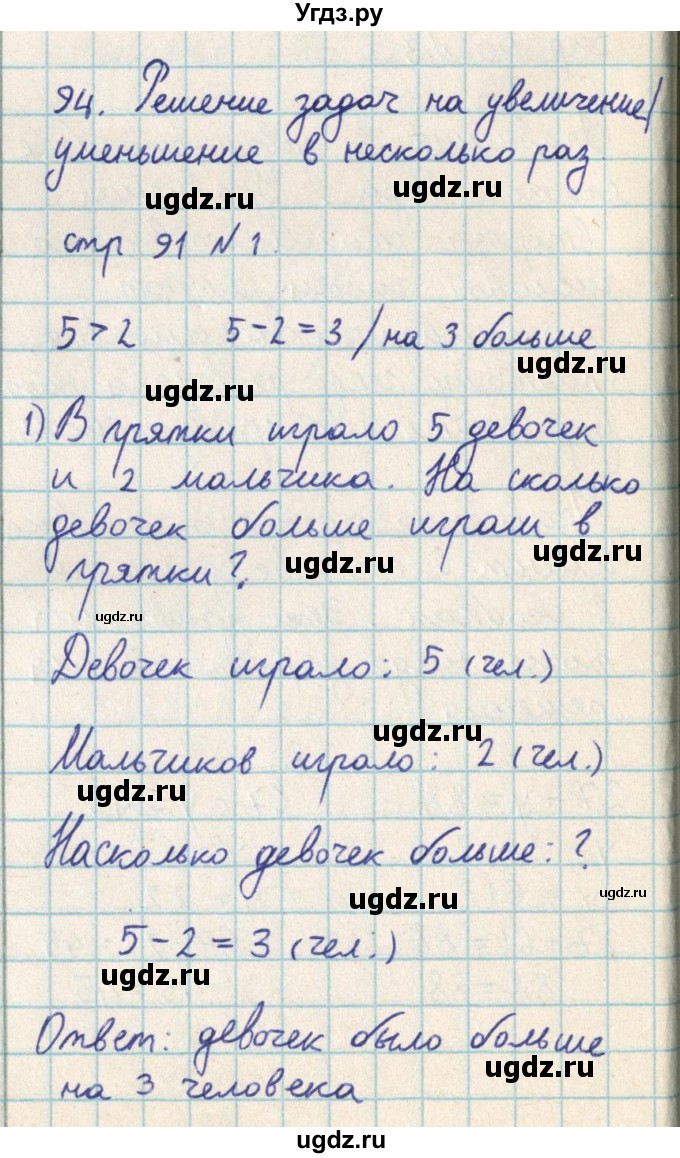 Угдз.ру
94. Решение задач на увеличение/
уменьшение в несколько раз.
ugdz.ru ugdz.ru
стр 91 N 1.
5 > 2 5 - 2 = 3 / на 3 больше
ugdz.ru
ugdz.ru
1) В прятки играло 5 девочек
и 2 мальчика. На сколько
девочек больше играли в
ugdz.ru
прятки?
ugdz.ru
ugdz.ru
Девочек играло: 5 (чел.)
ugdz.ru
Мальчиков играло: 2 (чел.)
ugdz.ru
Насколько девочек больше: ?
ugdz.ru
ugdz.ru
5 - 2 = 3 (чел.)
ugdz.ru
Ответ: девочек было больше
ugdz.ru
на 3 человека
ugdz.ru